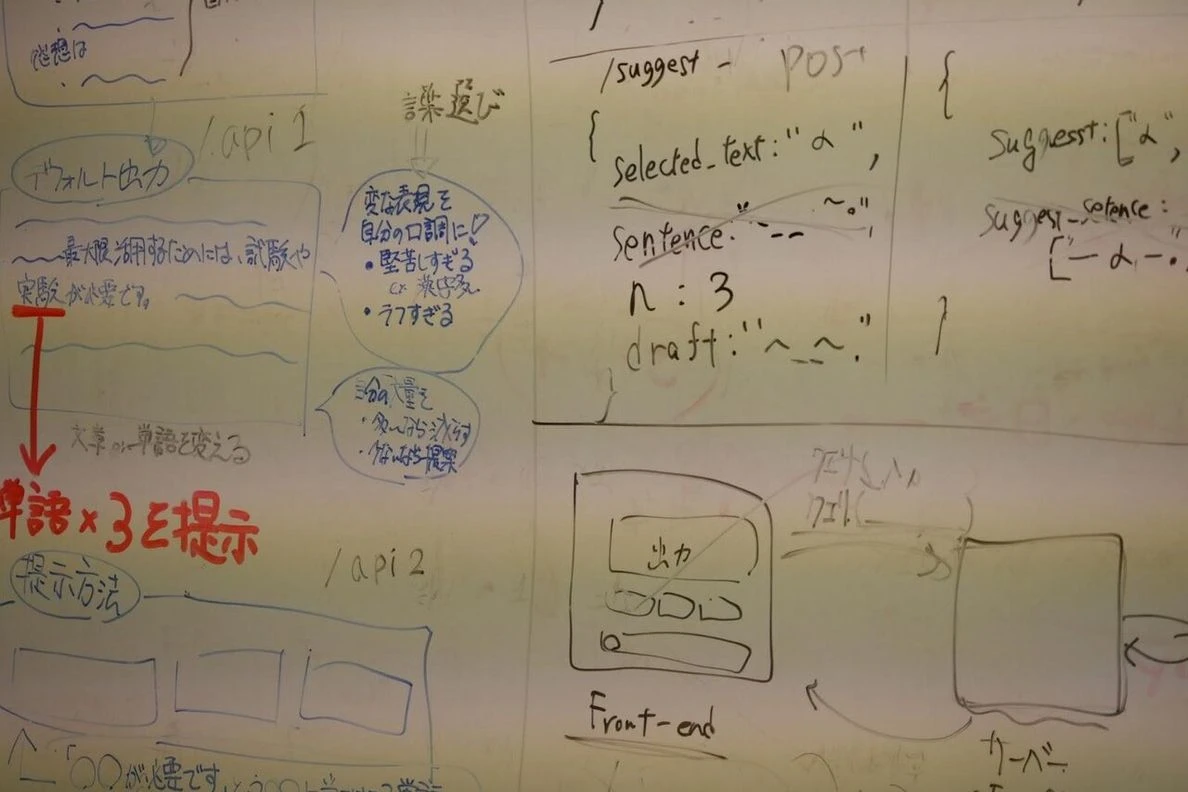 感想は
/api 1
デフォルト出力
最大限活用するためには、試験や
実験が必要です。
文章 or 単語を変える
単語×3を提示
提示方法
/api 2
「○○が必要です
選び
変な表現を
自分の口調に!
・堅苦しすぎる
・ラフすぎる
文量を
・多いなら減らす
・少ないなら提案
/suggest - POST
{
selected_text: "α",
sentence: "~-- ~."
n : 3
draft: "~_~."
}
{
suggesst: ["α",
suggest_setence:
["- α -."
}
出力
Front-end
サーバー